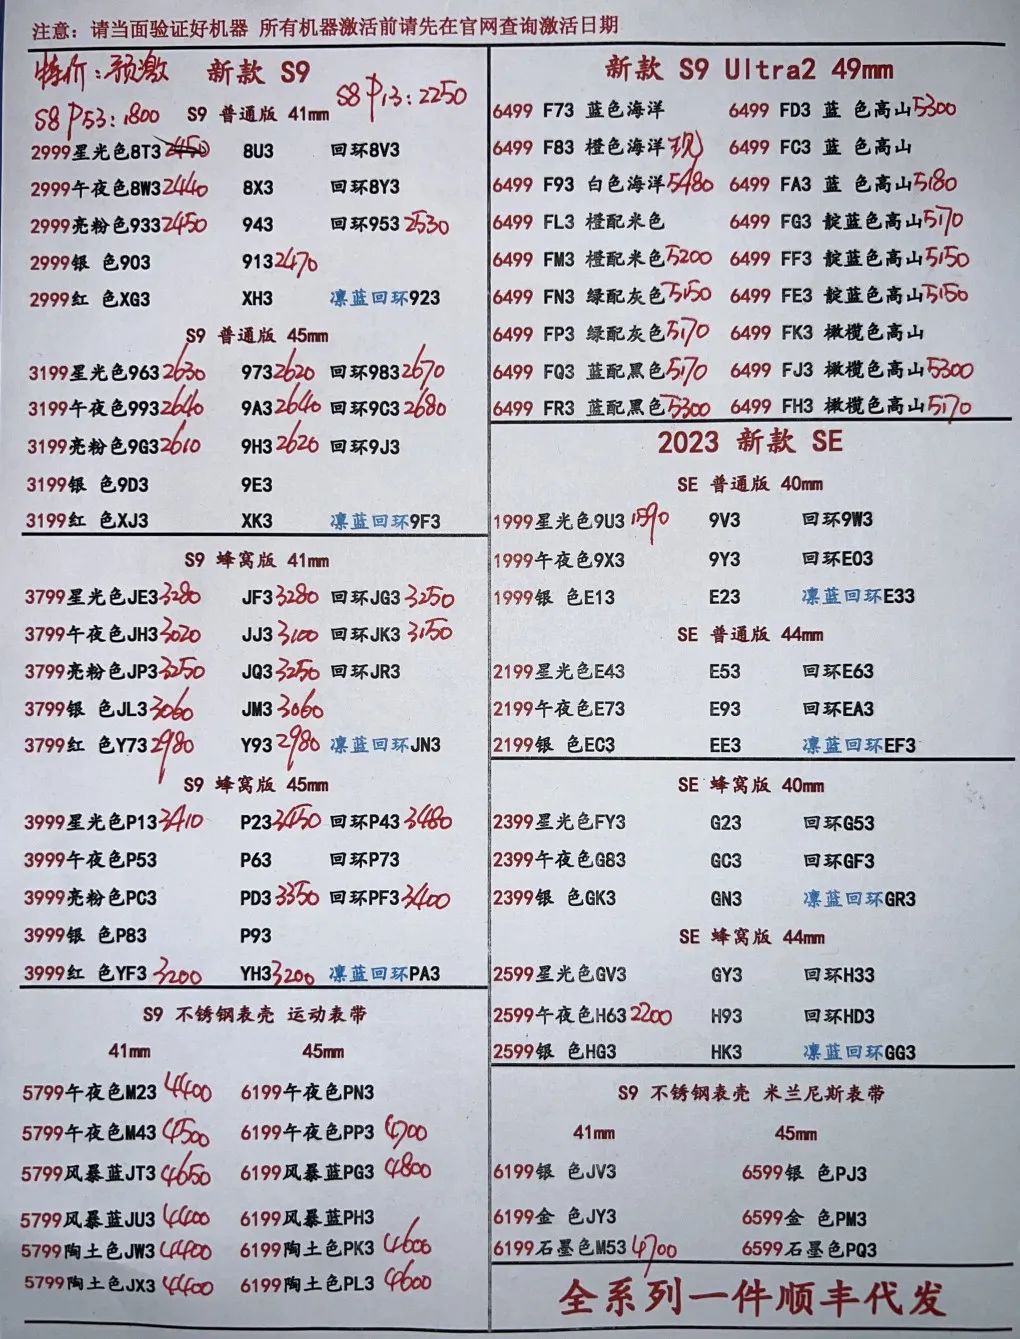 注意：请当面验证好机器 所有机器激活前请先在官网查询激活日期
特价：预激
新款 S9
S8 P53：1800
S8 P13：2250
S9 普通版 41mm
2999星光色8T3 2450 8U3 回环8V3
2999午夜色8W3 2440 8X3 回环8Y3
2999亮粉色933 2450 943 回环953 2530
2999银 色903 913 2470
2999红 色XG3 XH3 凛蓝回环923
S9 普通版 45mm
3199星光色963 2630 973 2620 回环983 2670
3199午夜色993 2640 9A3 2640 回环9C3 2680
3199亮粉色9G3 2610 9H3 2620 回环9J3
3199银 色9D3 9E3
3199红 色XJ3 XK3 凛蓝回环9F3
S9 蜂窝版 41mm
3799星光色JE3 3280 JF3 3280 回环JG3 3250
3799午夜色JH3 3020 JJ3 3100 回环JK3 3150
3799亮粉色JP3 3250 JQ3 3250 回环JR3
3799银 色JL3 3060 JM3 3060
3799红 色Y73 2980 Y93 2980 凛蓝回环JN3
S9 蜂窝版 45mm
3999星光色P13 3410 P23 3450 回环P43 3480
3999午夜色P53 P63 回环P73
3999亮粉色PC3 PD3 3350 回环PF3 3400
3999银 色P83 P93
3999红 色YF3 3200 YH3 3200 凛蓝回环PA3
S9 不锈钢表壳 运动表带
41mm 45mm
5799午夜色M23 4400 6199午夜色PN3
5799午夜色M43 4500 6199午夜色PP3 4700
5799风暴蓝JT3 4650 6199风暴蓝PG3 4800
5799风暴蓝JU3 4400 6199风暴蓝PH3
5799陶土色JW3 4400 6199陶土色PK3 4600
5799陶土色JX3 4400 6199陶土色PL3 4600
新款 S9 Ultra2 49mm
6499 F73 蓝色海洋 6499 FD3 蓝 色高山 5300
6499 F83 橙色海洋 现 6499 FC3 蓝 色高山
6499 F93 白色海洋 5480 6499 FA3 蓝 色高山 5180
6499 FL3 橙配米色 6499 FG3 靛蓝色高山 5170
6499 FM3 橙配米色 5200 6499 FF3 靛蓝色高山 5150
6499 FN3 绿配灰色 5150 6499 FE3 靛蓝色高山 5150
6499 FP3 绿配灰色 5170 6499 FK3 橄榄色高山
6499 FQ3 蓝配黑色 5170 6499 FJ3 橄榄色高山 5300
6499 FR3 蓝配黑色 5300 6499 FH3 橄榄色高山 5170
2023 新款 SE
SE 普通版 40mm
1999星光色9U3 1590 9V3 回环9W3
1999午夜色9X3 9Y3 回环E03
1999银 色E13 E23 凛蓝回环E33
SE 普通版 44mm
2199星光色E43 E53 回环E63
2199午夜色E73 E93 回环EA3
2199银 色EC3 EE3 凛蓝回环EF3
SE 蜂窝版 40mm
2399星光色FY3 G23 回环G53
2399午夜色G83 GC3 回环GF3
2399银 色GK3 GN3 凛蓝回环GR3
SE 蜂窝版 44mm
2599星光色GV3 GY3 回环H33
2599午夜色H63 2200 H93 回环HD3
2599银 色HG3 HK3 凛蓝回环GG3
S9 不锈钢表壳 米兰尼斯表带
41mm 45mm
6199银 色JV3 6599银 色PJ3
6199金 色JY3 6599金 色PM3
6199石墨色M53 4700 6599石墨色PQ3
全系列一件顺丰代发